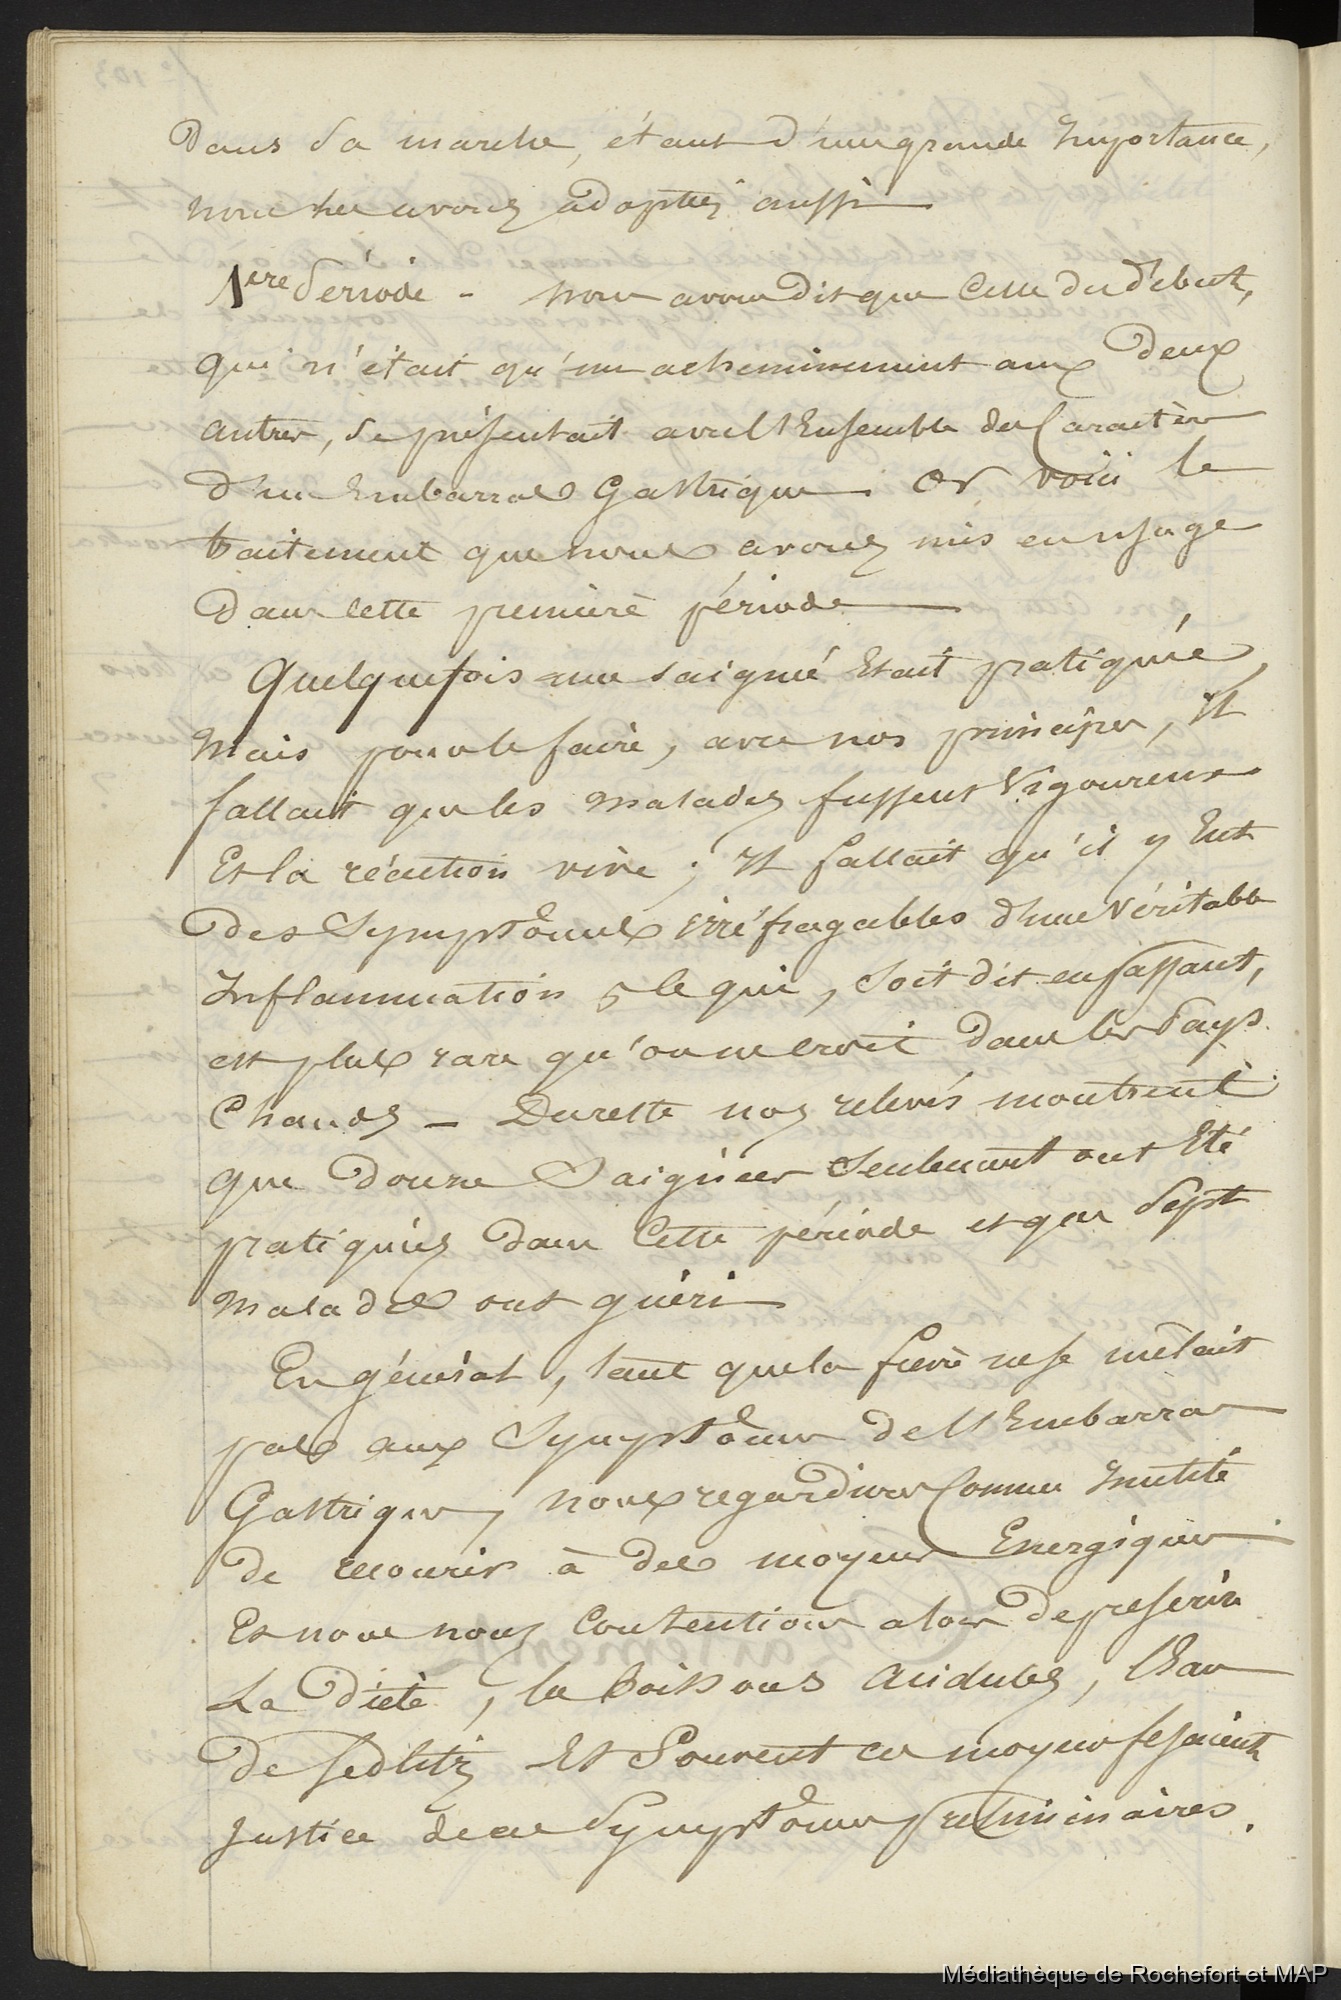 Dans sa marche, étant d'une grande Importance,
nous les avons adoptées aussi
1ère Période - nous avons dit que Celle du début,
qui n'était qu'un acheminement aux deux
autres, se présentait avec l'Ensemble des Caractères
d'un Embarras Gastrique. Or voici le
traitement que nous avons mis en usage
dans cette première période
Quelquefois une saignée Etait pratiquée,
Mais pour le faire, avec nos principes, Il
fallait que les malades fussent Vigoureux
Et la réaction vive ; Il fallait qu'il y Eut
des Symptômes irréfragables d'une Véritable
Inflammation, ce qui, soit dit en passant,
est plus rare qu'on ne croit dans les Pays
Chauds - Dureste nos relevés montrent
que douze Saignées seulement ont Eté
pratiquées dans Cette période et que Sept
Malades ont guéri
En général, tant que la fièvre ne se mêlait
pas aux Symptômes de l'Embarras
Gastrique, nous regardions Comme Inutile
de recourir à des moyens Energiques
Et nous nous Contentions alors de prescrire
La diète, les boissons acidules, l'Eau
de Sedlitz Et Souvent ces moyens fesaient
Justice de ces Symptômes préliminaires.
Médiathèque de Rochefort et MAP